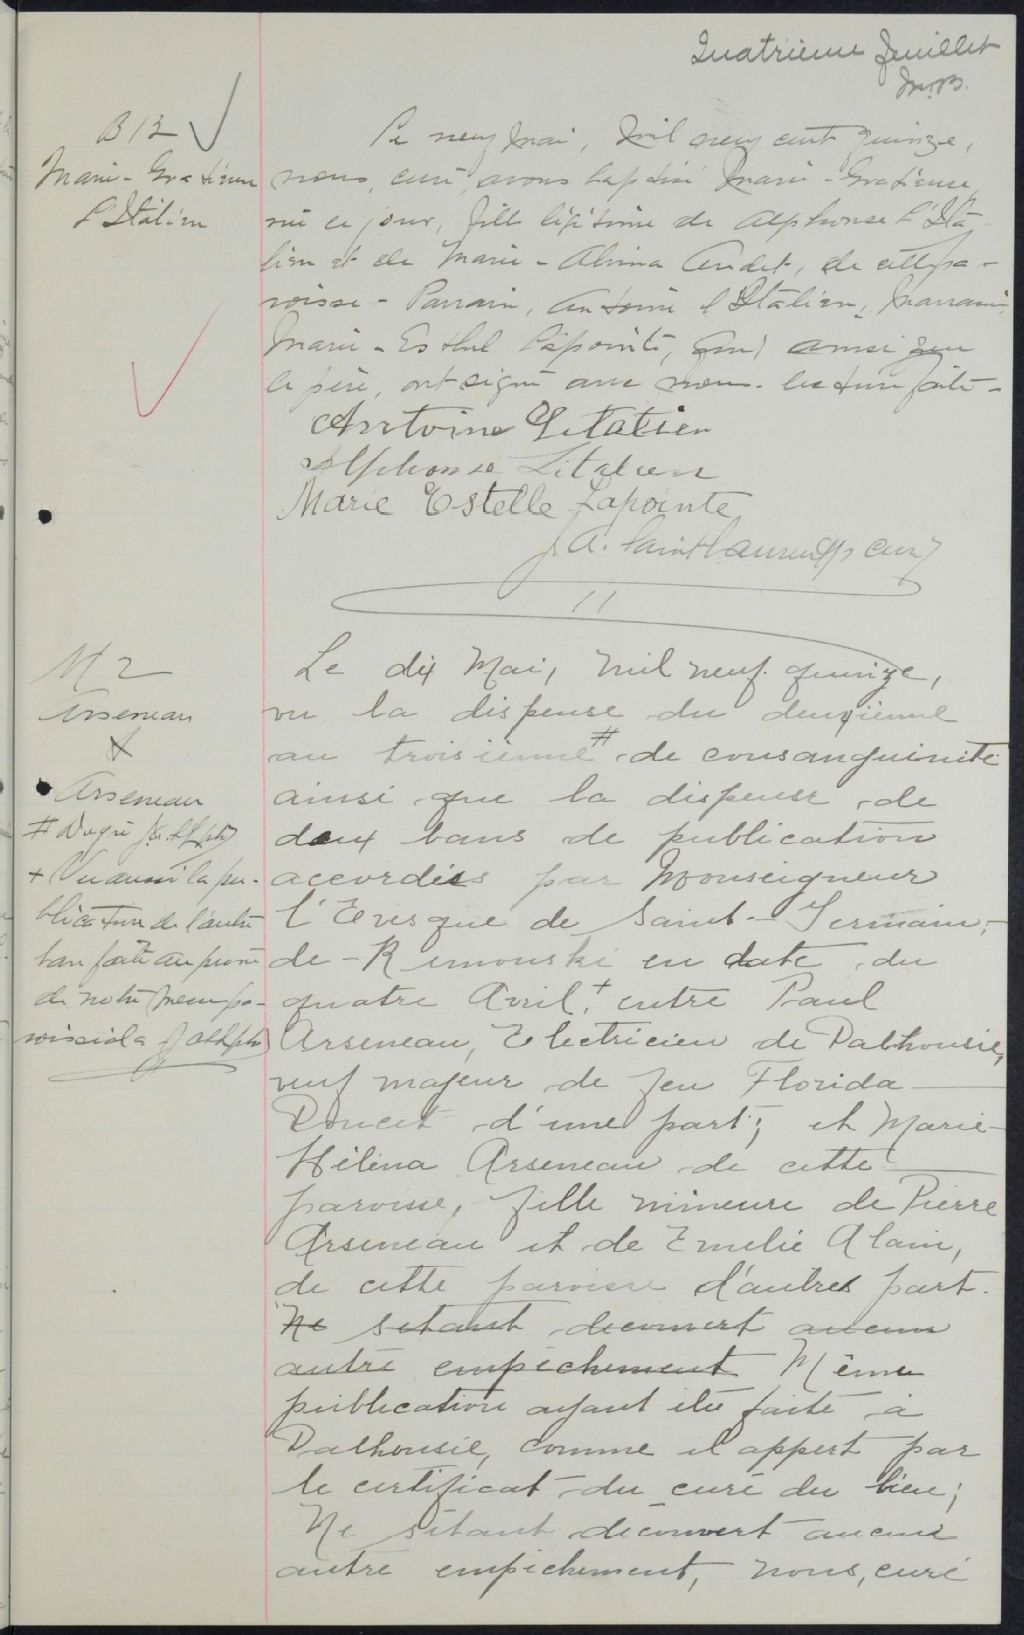 Quatrième feuillet
B 13
Marie-Gratieuse
L'Italien
Le neuf Mai, Mil neuf cent quinze,
nous, curé, avons baptisé Marie-Gratieuse
née ce jour, fille légitime de Alphonse L'Ita-
lien et de Marie-Alvina Audet, de cette pa-
roisse - Parrain, Antoine L'Italien, Marraine,
Marie-Esthel Lapointe, qui ainsi que
le père, ont signé avec nous. lecture faite -
Antoine Litalien
Alphonse Litalien
Marie Estelle Lapointe
J. A. Saint Laurent Ptre Curé
M 2
Arseneau
&
Arseneau
# Degré J.A.StL ptre
+ Vu aussi la pu-
blication de l'autre
ban faite au prône
de notre Messe pa-
roissiale J.A.StL ptre
Le dix Mai, Mil neuf. quinze,
vu la dispense du deuxième
au troisième # de consanguinité
ainsi que la dispense de
deux bans de publication
accordées par Monseigneur
l'Evêsque de Saint-Germain-
de-Rimouski en date du
quatre Avril, + entre Paul
Arseneau, Electricien de Dalhousie,
veuf majeur de feu Florida
Doucet d'une part; et Marie-
Hélèna Arseneau de cette
paroisse, fille mineure de Pierre
Arseneau et de Emelie Alain,
de cette paroisse d'autres part.
Ne sétant découvert aucun
autre empêchement Même
publication ayant été faite à
Dalhousie, comme il appert par
le certificat du curé du lieu;
Ne sétant découvert aucun
autre empêchement, nous, curé